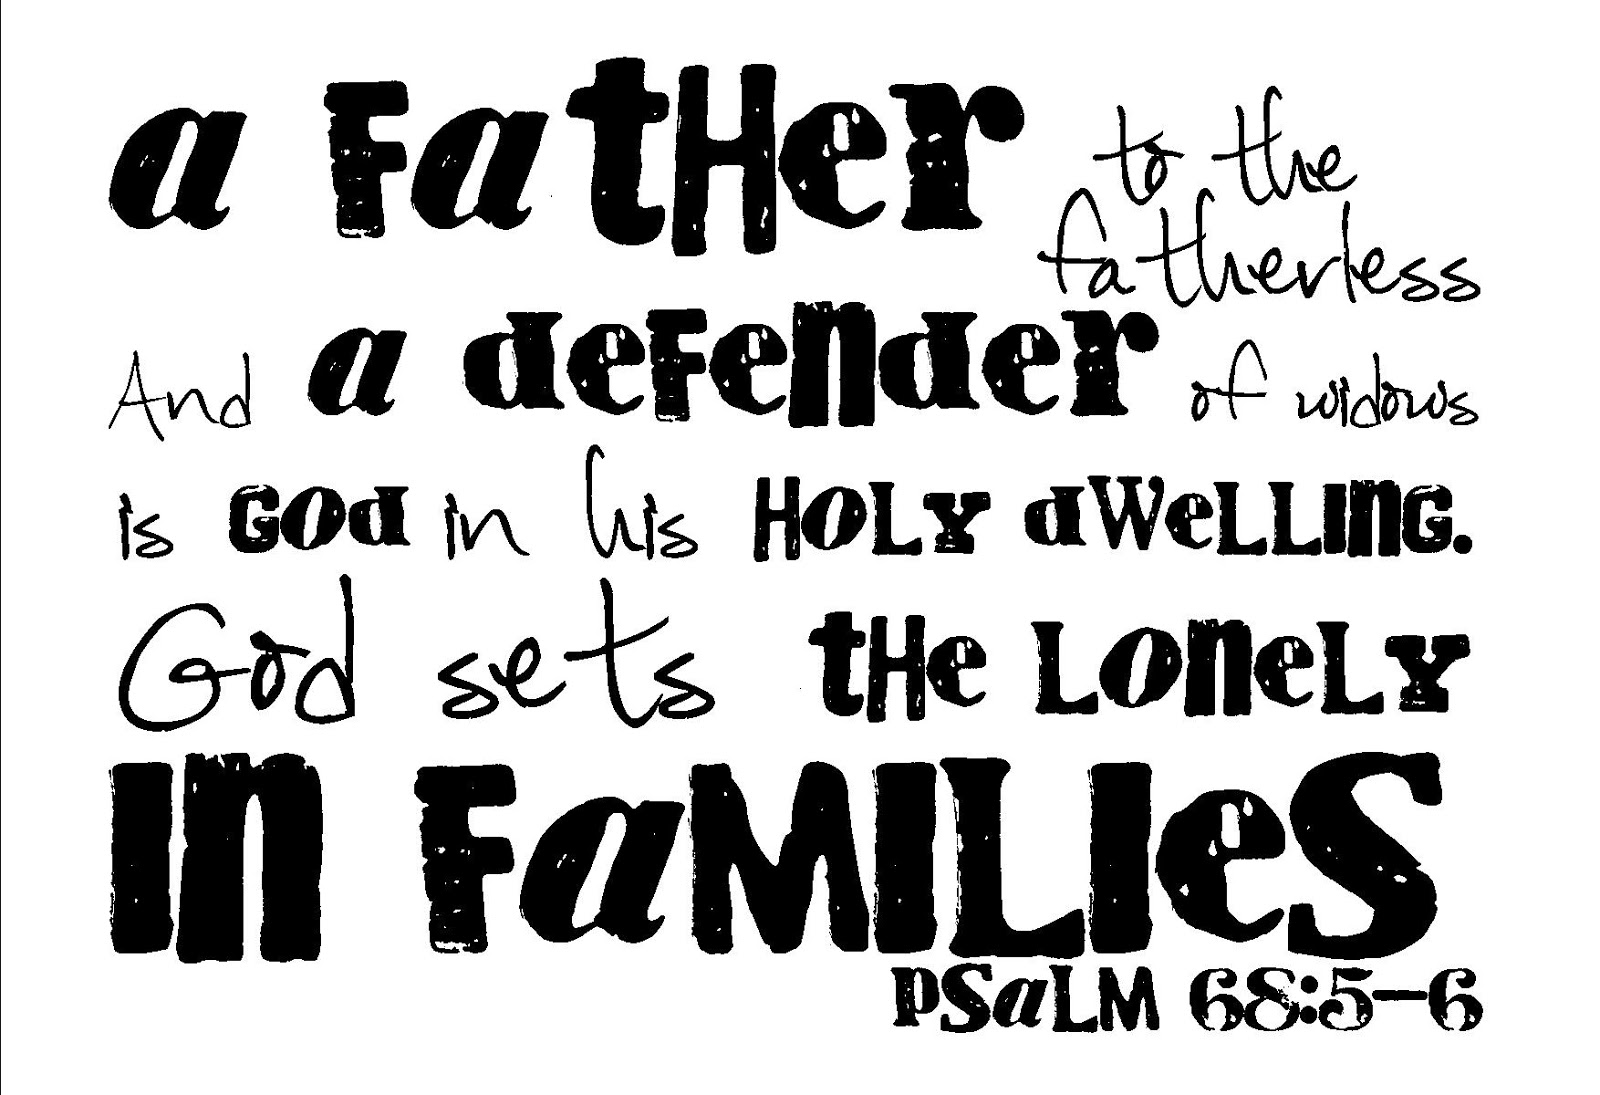 a FatHer to the
fatherless
And a deFender of widows
is God in his HOLY dWeLLING.
God sets tHe LoneLY
In FaMILIeS
PSaLM 68:5-6